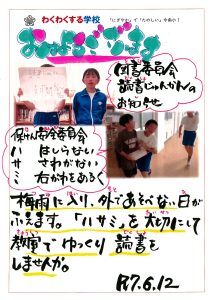 わくわくする学校
「にぎやか」で「たのしい」今南小!
おはようございます
図書委員会
読書じゅんかんの
お知らせ
保けん安全委員会
ハ はしらない
サ さわがない
ミ 右がわをあるく
梅雨に入り、外であそべない日が
ふえます。「ハサミ」を大切にして
教室でゆっくり読書を
しませんか。
R7.6.12